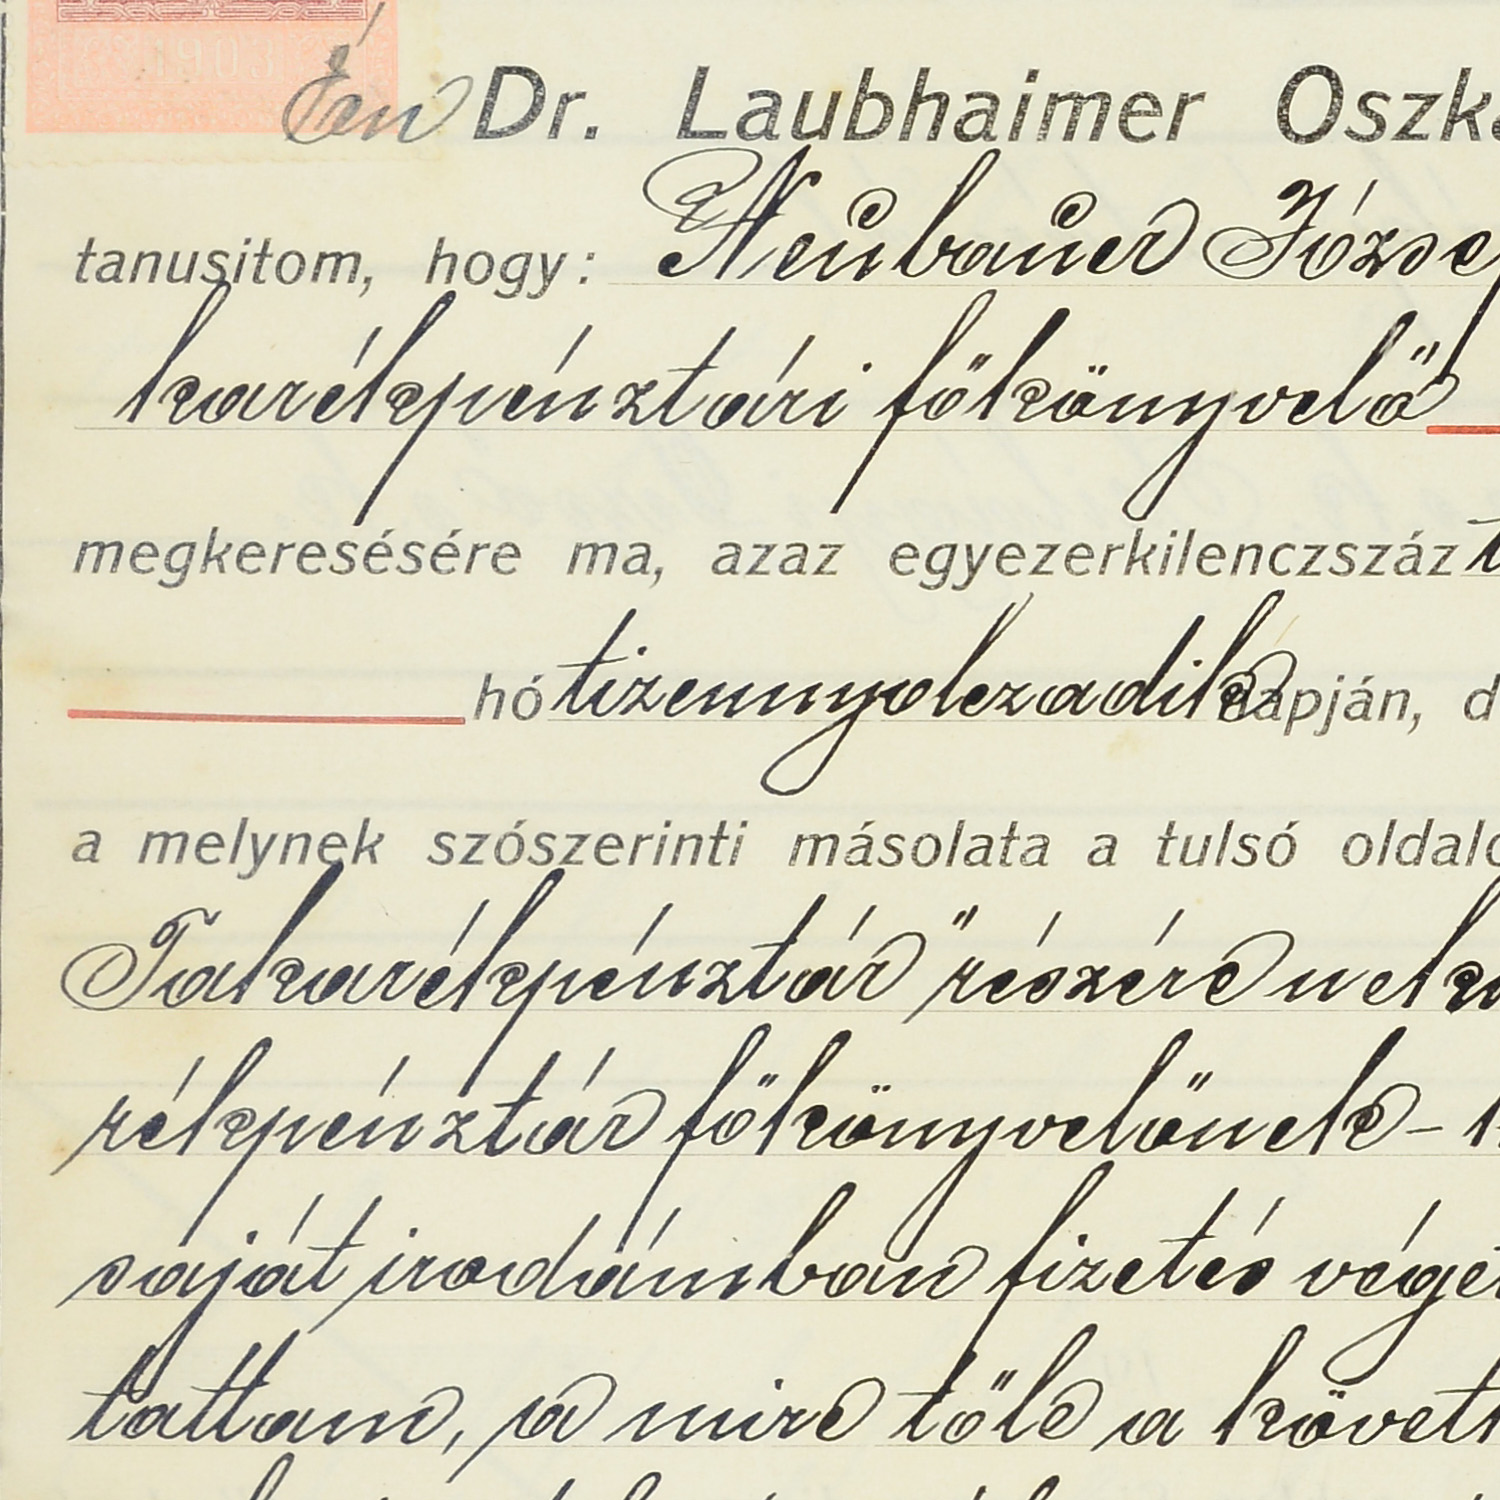 1903
Én Dr. Laubhaimer Oszká
tanusitom, hogy: Neubauer József
karékpénztári főkönyvelő
megkeresésére ma, azaz egyezerkilenczszáz t
hó tizennyolczadik napján, d
a melynek szószerinti másolata a tulsó oldalo
Takarékpénztár" részére nek
rékpénztár főkönyvelőnek –
saját irodámban fizetés vége
tattam, a mire tőle a követk